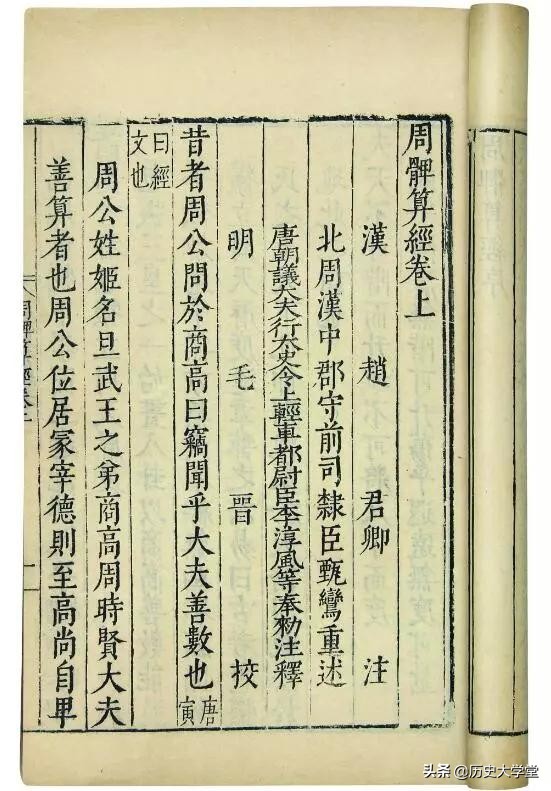 周髀算經卷上
漢 趙 君卿 注
北周漢中郡守前司隸臣甄鸞重述
唐朝議大夫行太史令上輕車都尉臣李淳風等奉勑注釋
明 毛 晉 挍
昔者周公問於商高曰竊聞乎大夫善數也
唐
寅
曰經
文也
周公姓姬名旦武王之弟商高周時賢大夫
善算者也周公位居冢宰德則至高尚自卑
周髀算經卷上
一
头条 @历史大学堂